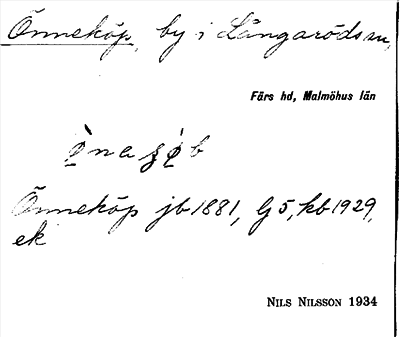 Önneköp, by i Långaröds sn,
Färs hd, Malmöhus län
Önneköp jb 1881, G5, kb 1929,
ek
NILS NILSSON 1934